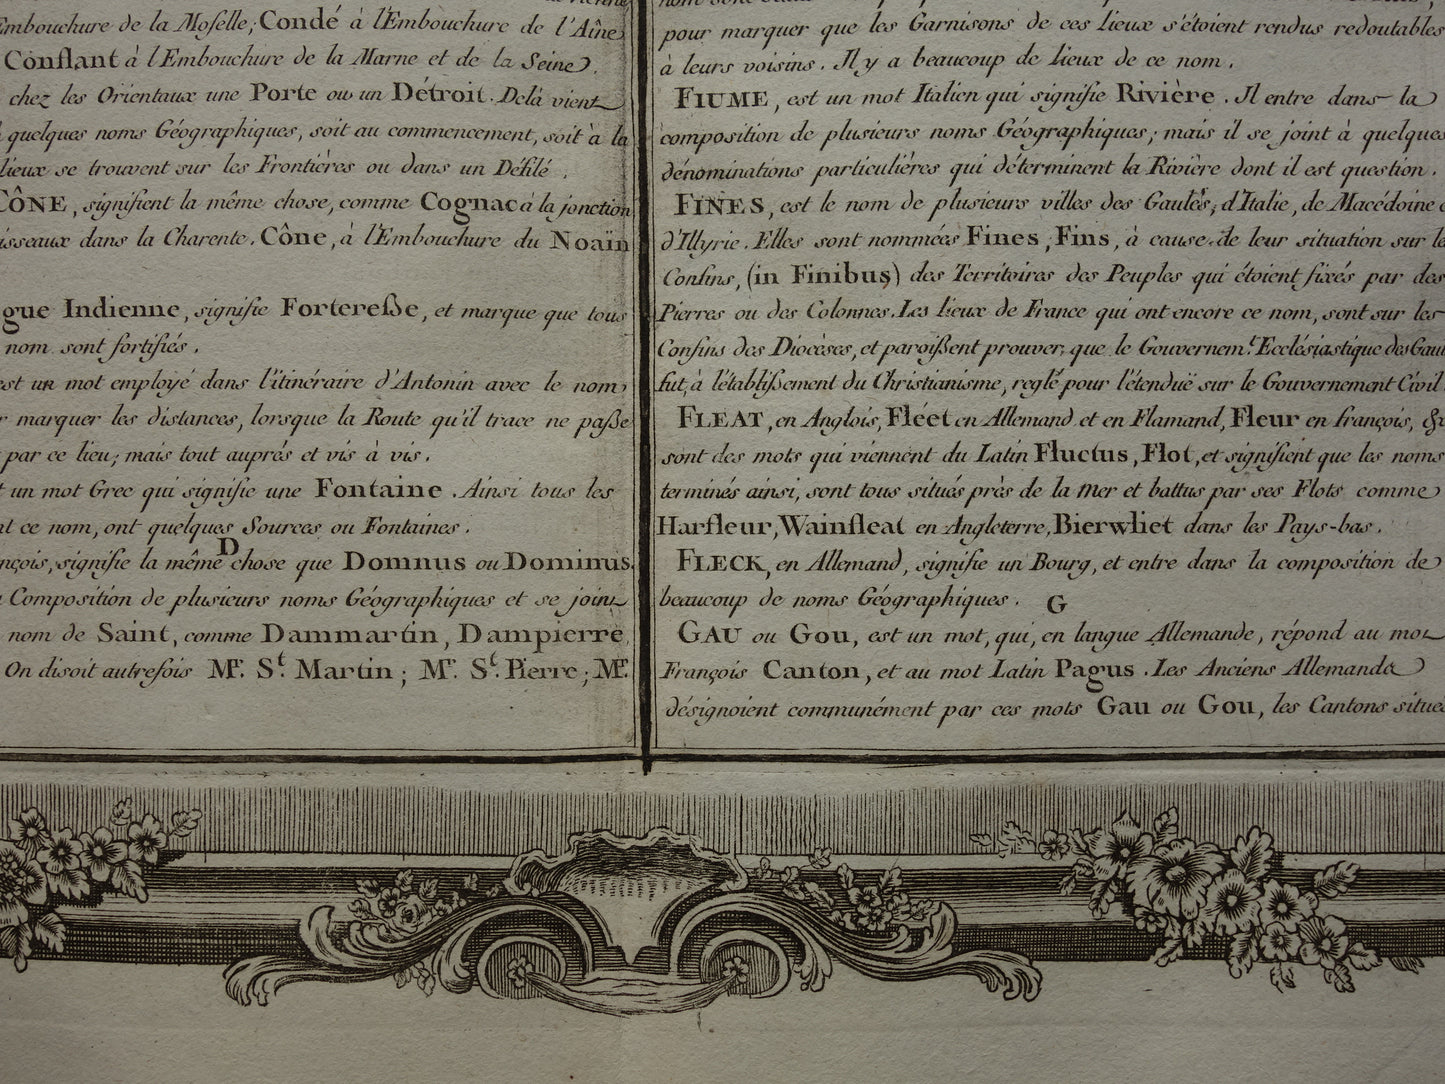 Embouchure de la Moselle; Condé à l'Embouchure de l'Aîne
Conflant à l'Embouchure de la Marne et de la Seine.
chez les Orientaux une Porte ou un Détroit. Delà vient
quelques noms Géographiques, soit au commencement, soit à la
lieux se trouvent sur les Frontières ou dans un Défilé.
CÔNE, signifient la même chose, comme Cognac à la jonction
isseaux dans la Charente. Cône, à l'Embouchure du Noaïn
gue Indienne, signifie Fortereße, et marque que tous
nom sont fortifiés.
est un mot employé dans l'itinéraire d'Antonin avec le nom
r marquer les distances, lorsque la Route qu'il trace ne paße
par ce lieu; mais tout auprés et vis à vis.
t un mot Grec qui signifie une Fontaine. Ainsi tous les
nt ce nom, ont quelques Sources ou Fontaines.
D
nçois, signifie la même chose que Domnus ou Dominus.
Composition de plusieurs noms Géographiques et se joint
nom de Saint, comme Dammartin, Dampierre,
On disoit autrefois Mr. St. Martin; Mr. St. Pierre; Mr.
pour marquer que les Garnisons de ces lieux s'étoient rendus redoutables
à leurs voisins. Il y a beaucoup de lieux de ce nom.
FIUME, est un mot Italien qui signifie Rivière. Il entre dans la
composition de plusieurs noms Géographiques; mais il se joint à quelques
dénominations particulières qui déterminent la Rivière dont il est question.
FINES, est le nom de plusieurs villes des Gaules, d'Italie, de Macédoine e
d'Illyrie. Elles sont nommées Fines, Fins, à cause de leur situation sur le
Confins, (in Finibus) des Territoires des Peuples qui étoient fixés par des
Pierres ou des Colonnes. Les lieux de France qui ont encore ce nom, sont sur les
Confins des Diocèses, et paroißent prouver, que le Gouvernem.t Ecclésiastique des Gaul
fut, à l'établißement du Christianisme, reglé pour l'étenduë sur le Gouvernement Civil.
FLEAT, en Anglois, Fléet en Allemand et en Flamand, Fleur en françois, &c
sont des mots qui viennent du Latin Fluctus, Flot, et signifient que les noms
terminés ainsi, sont tous situés près de la mer et battus par ses Flots comme
Harfleur, Wainfleat en Angleterre, Bierwliet dans les Pays-bas.
FLECK, en Allemand, signifie un Bourg, et entre dans la composition de
beaucoup de noms Géographiques.
G
GAU ou GOU, est un mot, qui, en langue Allemande, répond au mot
François Canton, et au mot Latin Pagus. Les Anciens Allemands
désignoient communément par ces mots Gau ou Gou, les Cantons situés